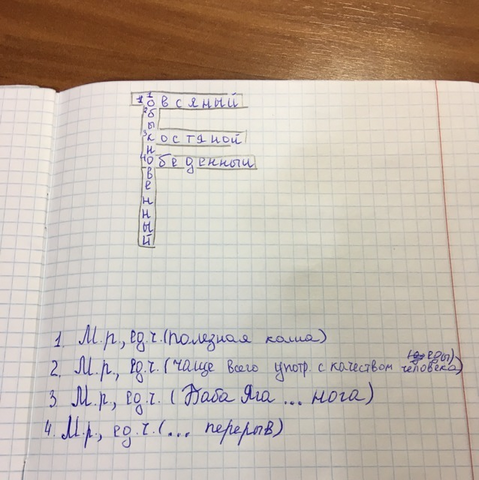 1 1 овсяный
2 б
ы
3 костяной
н
4 обеденный
в
е
н
н
ы
й
1. М.р., ед.ч. (полезная каша)
еды)
2. М.р., ед.ч. (чаще всего употр. с качеством человека)
3. М.р., ед.ч. (Баба Яга ... нога)
4. М.р., ед.ч. (... перерыв)